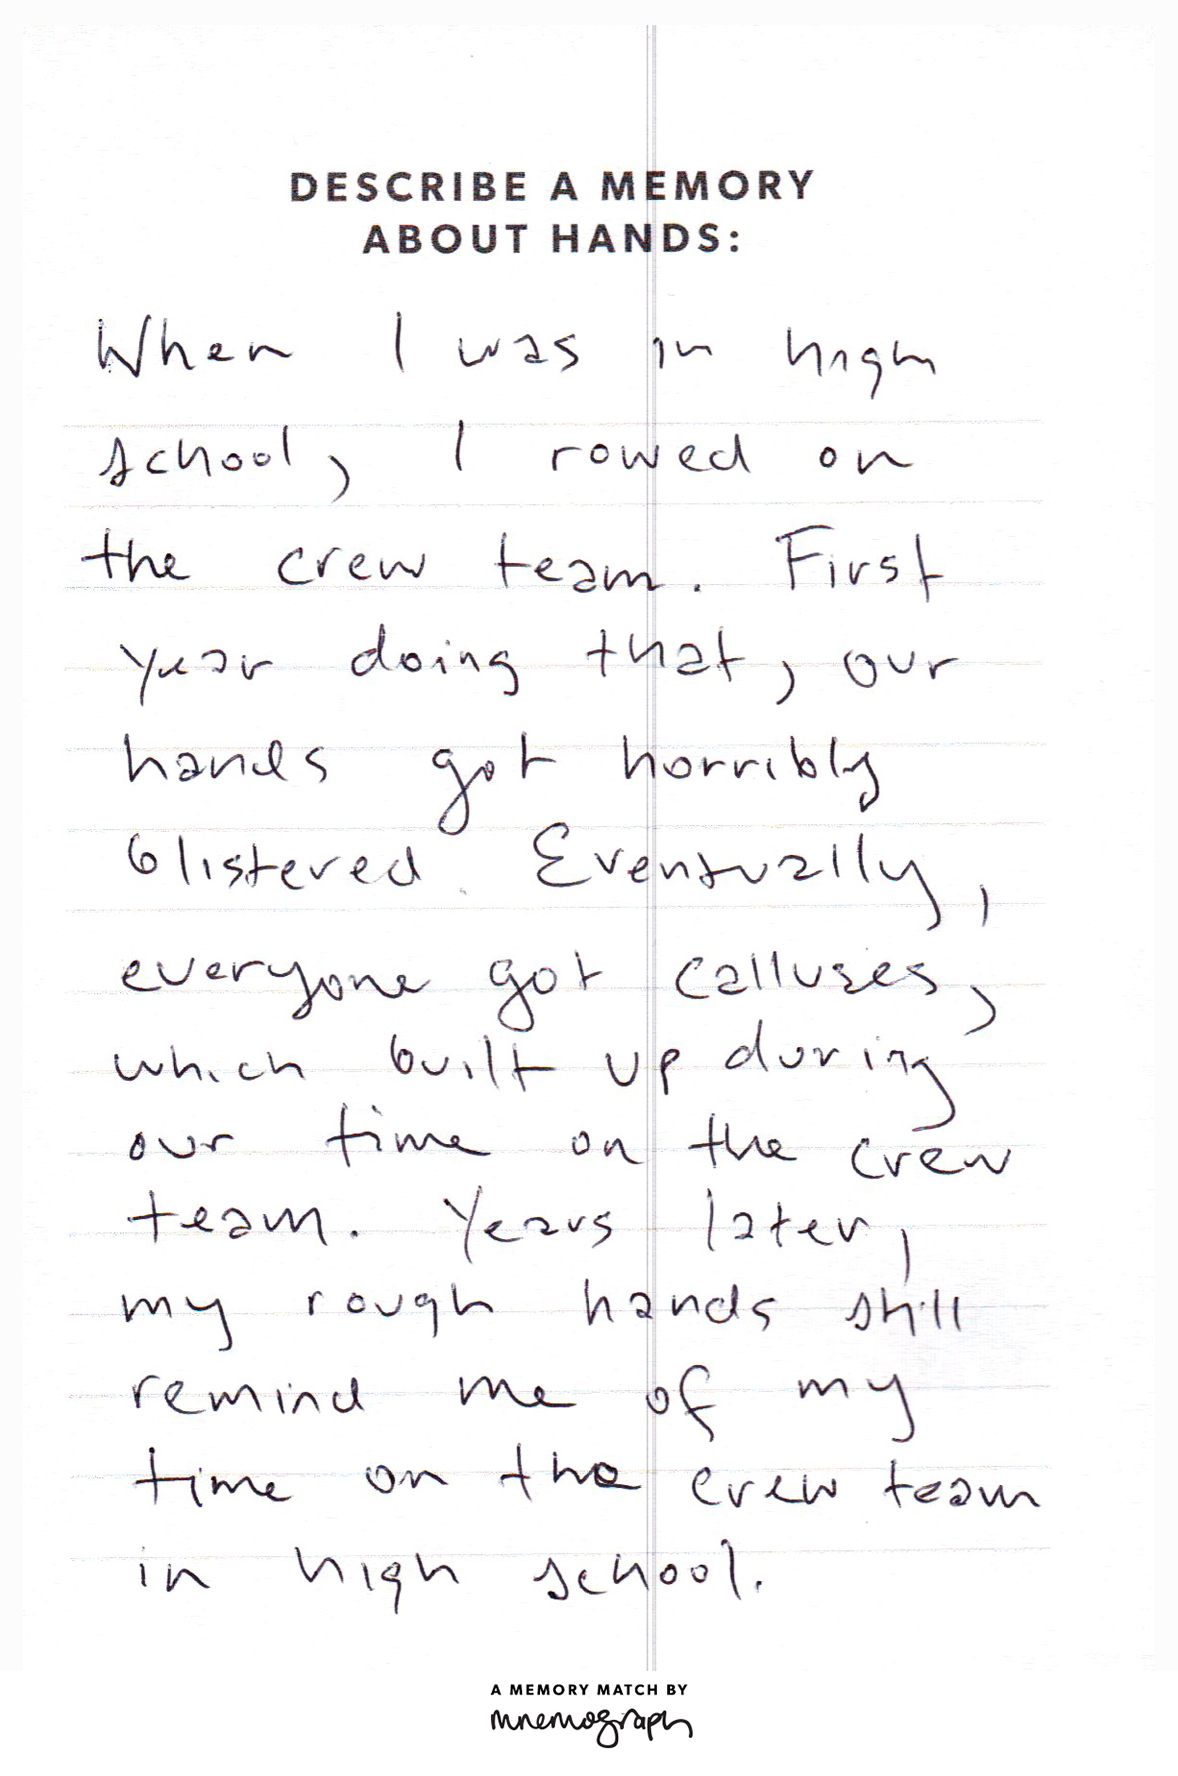 DESCRIBE A MEMORY
ABOUT HANDS:
When I was in high
school, I rowed on
the crew team. First
year doing that, our
hands got horribly
blistered. Eventually,
everyone got calluses,
which built up during
our time on the crew
team. Years later,
my rough hands still
remind me of my
time on the crew team
in high school.
A MEMORY MATCH BY
mnemograph